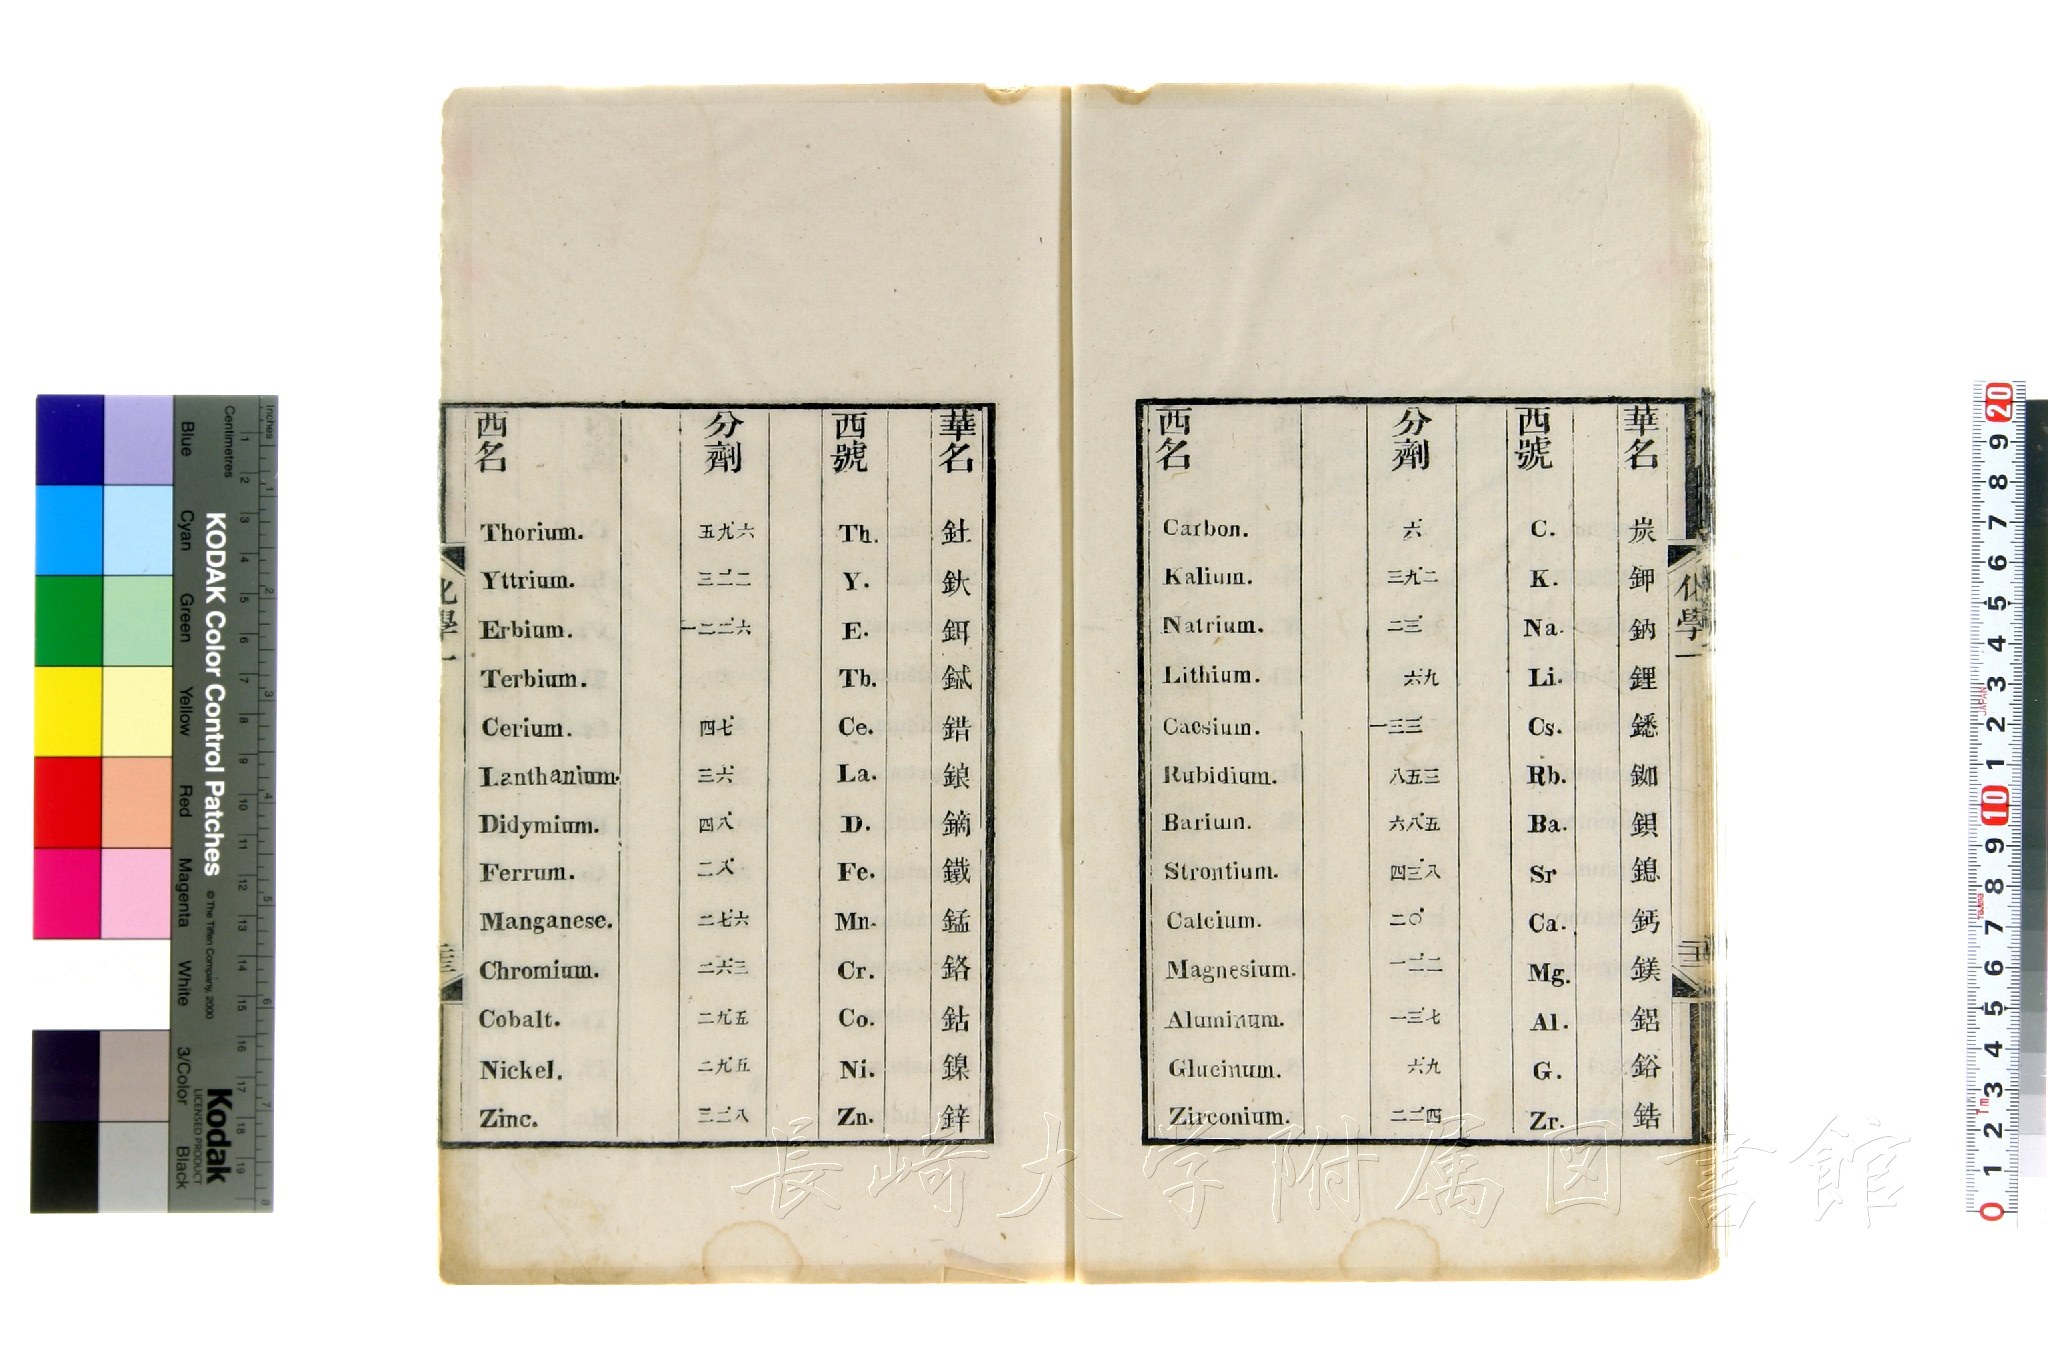 化學一
三
華名 西號 分劑 西名
炭 C. 六 Carbon.
鉀 K. 三九二 Kalium.
鈉 Na. 二三 Natrium.
鋰 Li. 六九 Lithium.
鏭 Cs. 一三三 Caesium.
銣 Rb. 八五三 Rubidium.
鋇 Ba. 六八五 Barium.
鎴 Sr 四三八 Strontium.
鈣 Ca. 二〇 Calcium.
鎂 Mg. 一二二 Magnesium.
鋁 Al. 一三七 Aluminum.
鋊 G. 六九 Glucinum.
鋯 Zr. 二二四 Zirconium.
華名 西號 分劑 西名
釷 Th. 五九六 Thorium.
釱 Y. 三二二 Yttrium.
鉺 E. 一二二六 Erbium.
鋱 Tb. Terbium.
錯 Ce. 四七 Cerium.
鋃 La. 三六 Lanthanium.
鏑 D. 四八 Didymium.
鐵 Fe. 二八 Ferrum.
錳 Mn. 二七六 Manganese.
鉻 Cr. 二六三 Chromium.
鈷 Co. 二九五 Cobalt.
鎳 Ni. 二九五 Nickel.
鋅 Zn. 三二八 Zinc.
化學一
長崎大学附属図書館
KODAK Color Control Patches
© The Tiffen Company, 2000
Kodak
LICENSED PRODUCT
Inches
Centimetres
Blue
Cyan
Green
Yellow
Red
Magenta
White
3/Color
Black
JAPAN